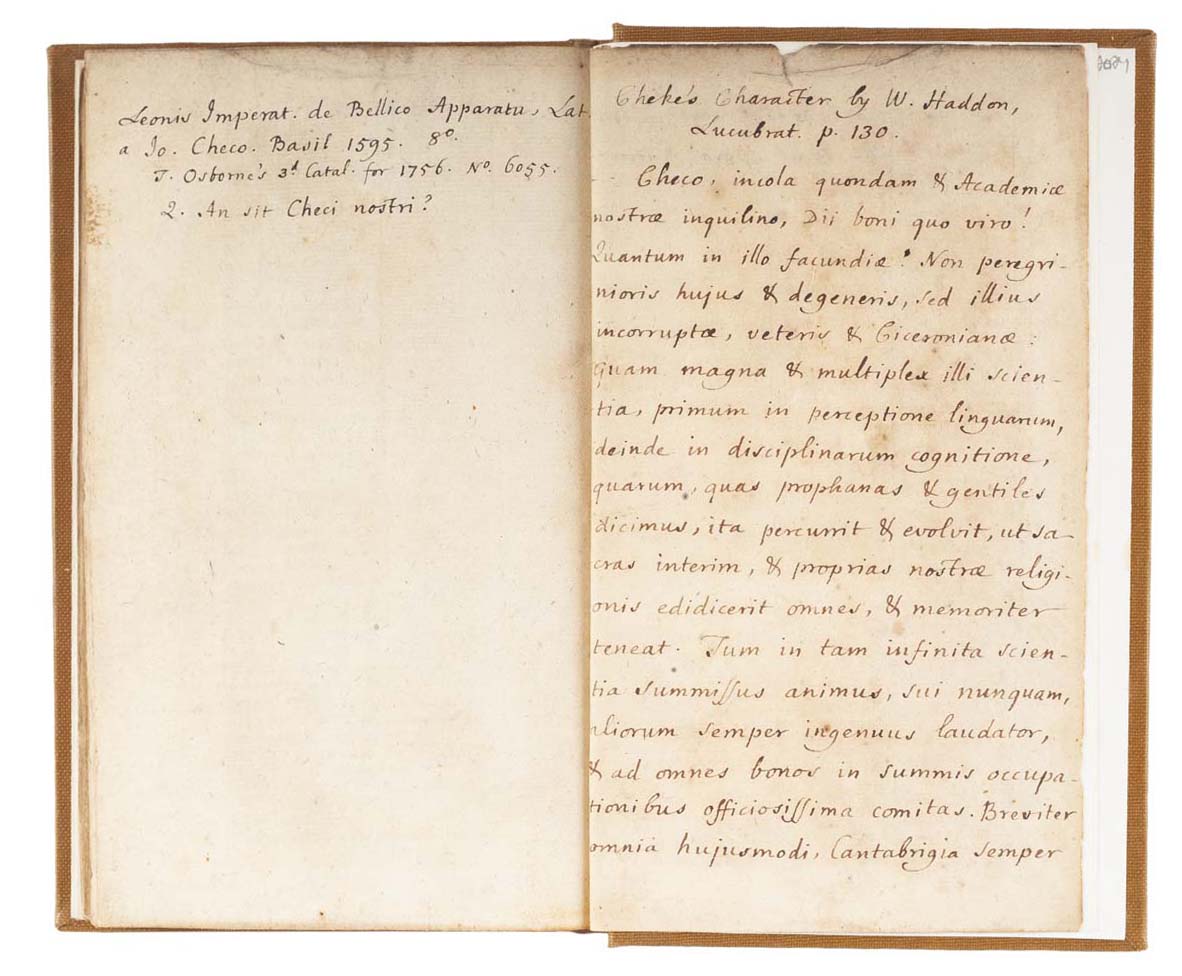 Leonis Imperat. de Bellico Apparatu, Lat.
a Jo. Checo. Basil 1595. 8o.
T. Osborne's 3d Catal. for 1756. No. 6055.
Q. An sit Checi nostri?
Cheke's Character by W. Haddon,
Lucubrat. p. 130.
Checo, incola quondam & Academiæ
nostræ inquilino, Dii boni quo viro!
Quantum in illo facundiæ? Non peregri-
nioris hujus & degeneris, sed illius
incorruptæ, veteris & Ciceronianæ:
Quam magna & multiplex illi scien-
tia, primum in perceptione linguarum,
deinde in disciplinarum cognitione,
quarum, quas prophanas & gentiles
dicimus, ita percurrit & evolvit, ut sa-
cras interim, & proprias nostræ religi-
onis edidicerit omnes, & memoriter
teneat. Tum in tam infinita scien-
tia summissus animus, sui nunquam,
aliorum semper ingenuus laudator,
& ad omnes bonos in summis occupa-
tionibus officiosissima comitas. Breviter
omnia hujusmodi, Cantabrigia semper